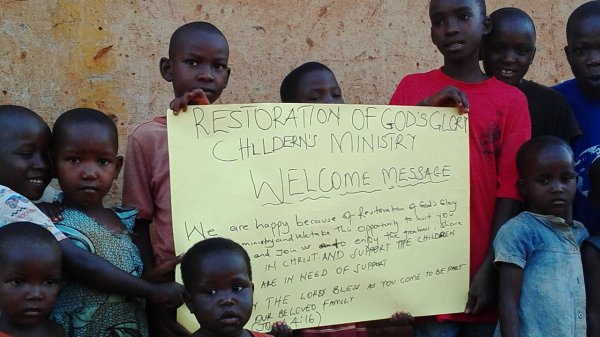 RESTORATION OF GOD'S GLORY
CHILDERN'S MINISTRY
WELCOME MESSAGE
We are happy because of Restoration of God's Glory
ministry and we take this opportunity to invit you
and Join us and enjoy the greatness, share
IN CHRIST AND SUPPORT THE CHILDREN
ARE IN NEED OF SUPPORT
THE LORD BLESS AS YOU COME TO BE PART
OUR BELOVED FAMILY
4:16)